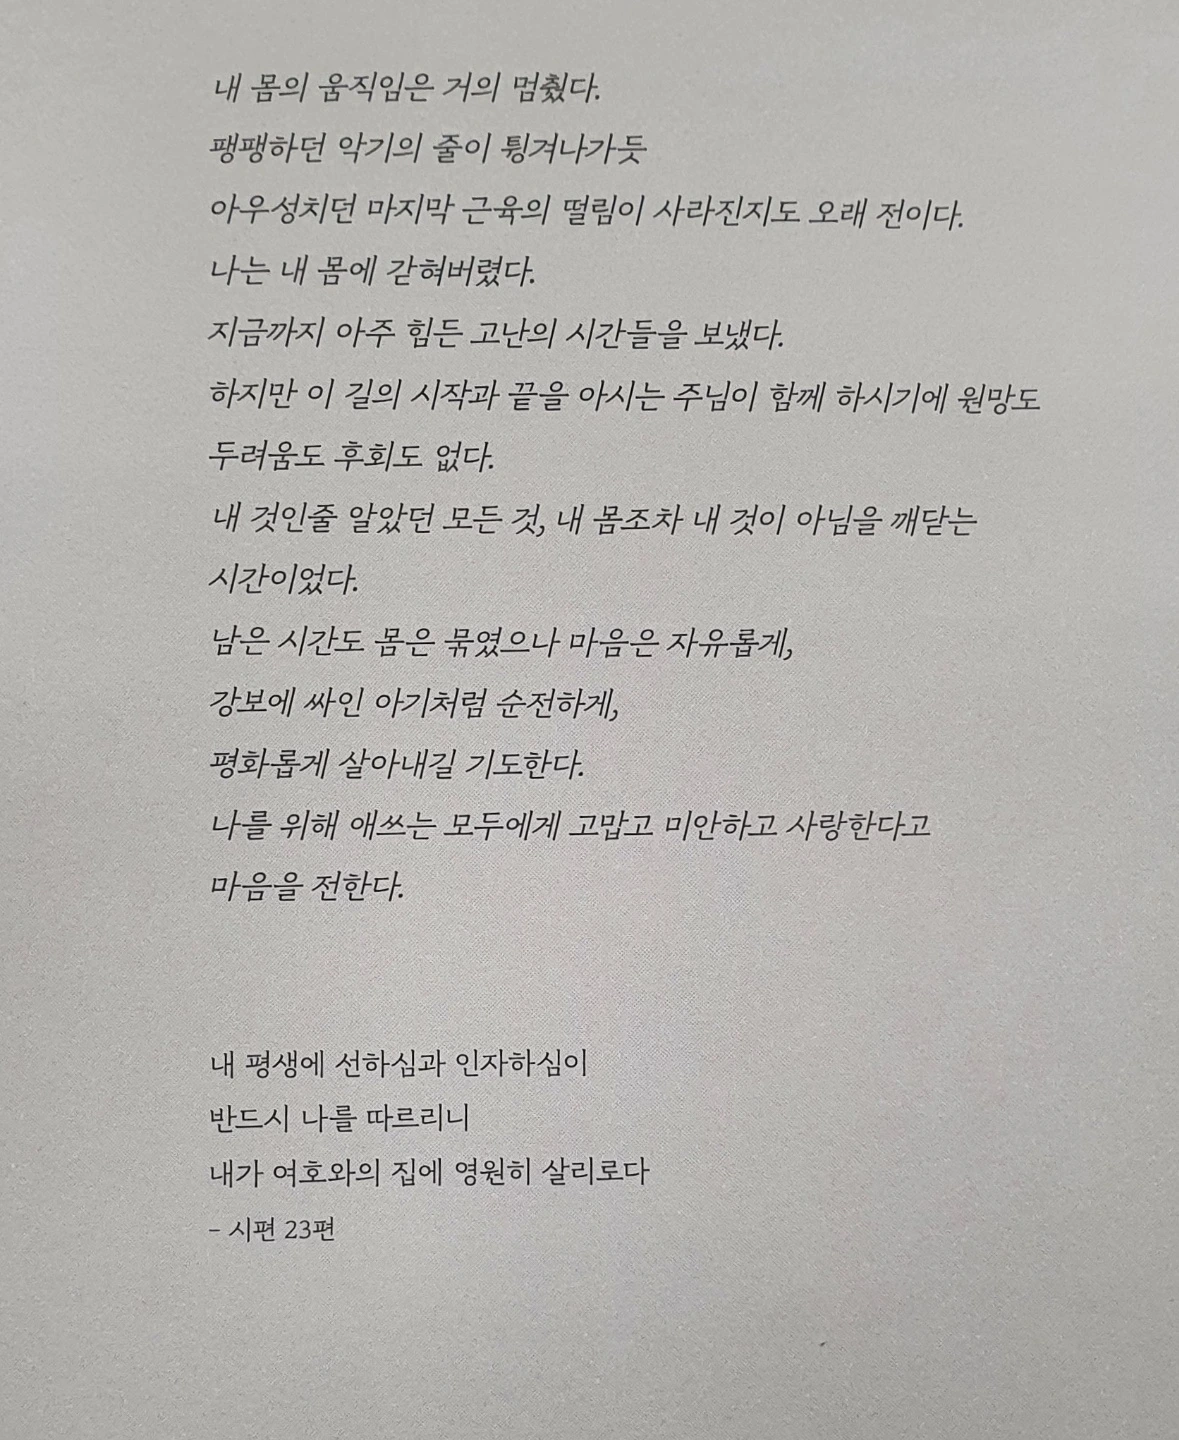 내 몸의 움직임은 거의 멈췄다.
팽팽하던 악기의 줄이 튕겨나가듯
아우성치던 마지막 근육의 떨림이 사라진지도 오래 전이다.
나는 내 몸에 갇혀버렸다.
지금까지 아주 힘든 고난의 시간들을 보냈다.
하지만 이 길의 시작과 끝을 아시는 주님이 함께 하시기에 원망도
두려움도 후회도 없다.
내 것인줄 알았던 모든 것, 내 몸조차 내 것이 아님을 깨닫는
시간이었다.
남은 시간도 몸은 묶였으나 마음은 자유롭게,
강보에 싸인 아기처럼 순전하게,
평화롭게 살아내길 기도한다.
나를 위해 애쓰는 모두에게 고맙고 미안하고 사랑한다고
마음을 전한다.
내 평생에 선하심과 인자하심이
반드시 나를 따르리니
내가 여호와의 집에 영원히 살리로다
– 시편 23편